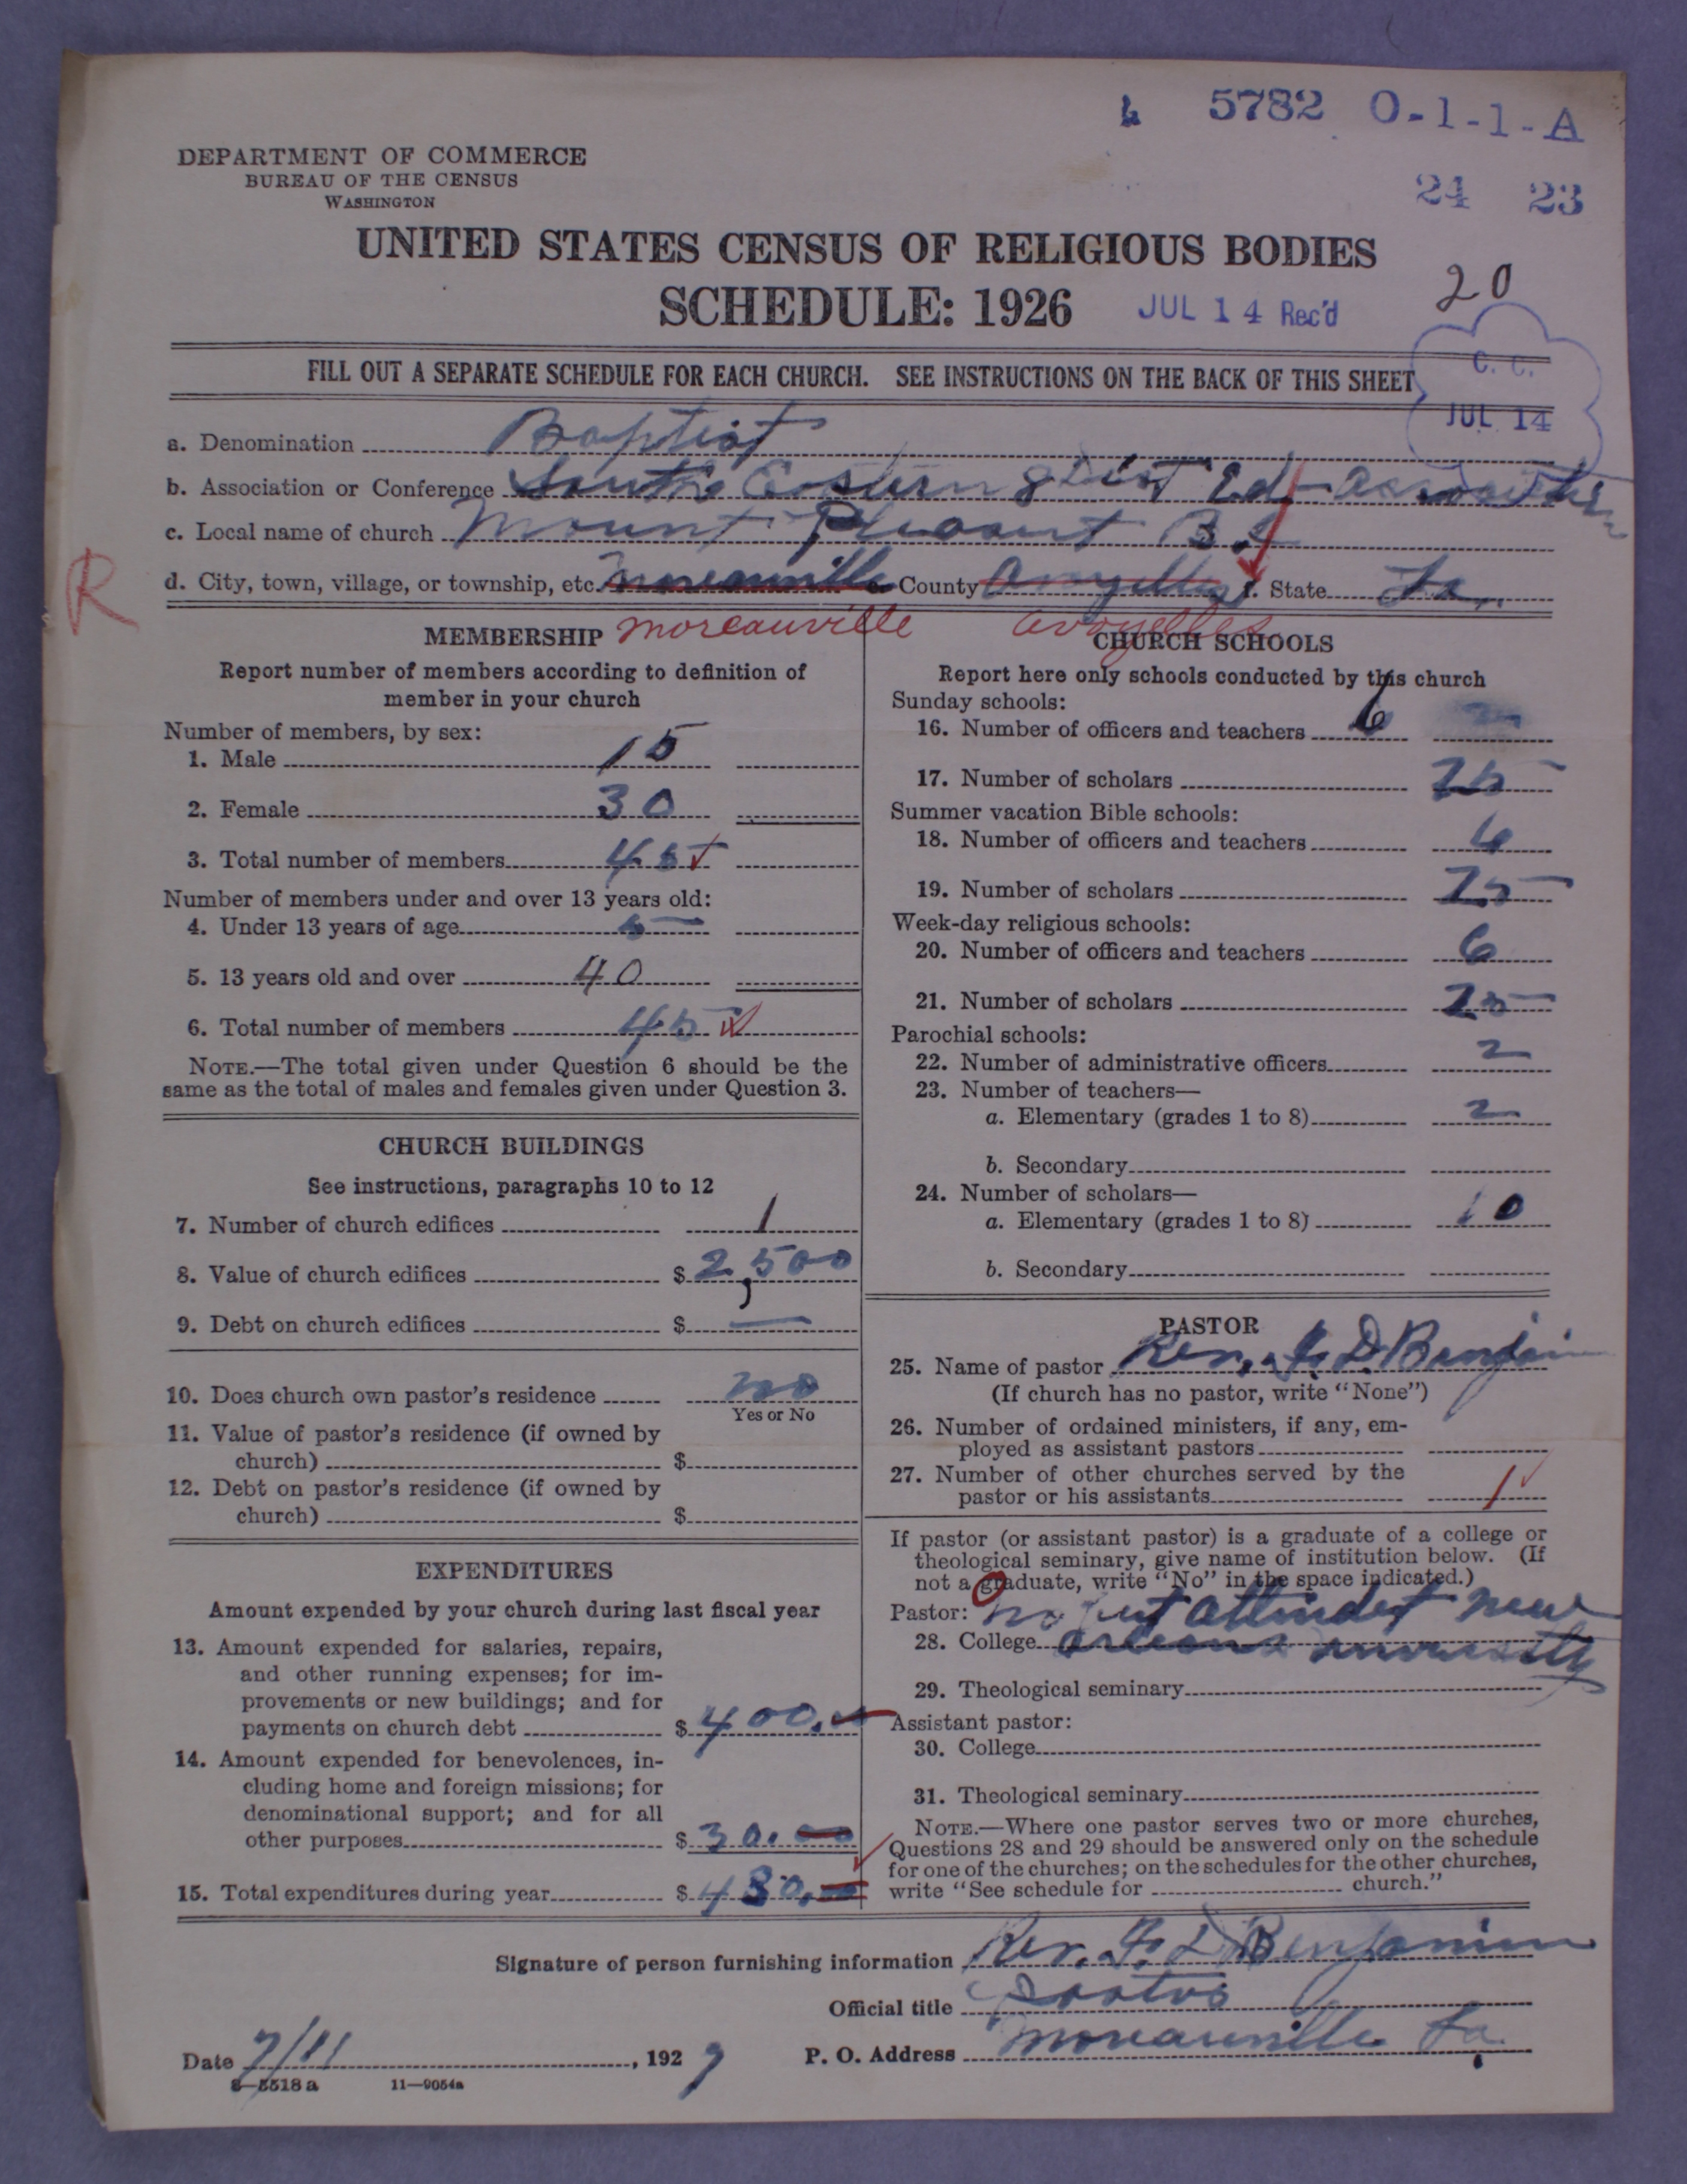 5782 O-1-1-A
DEPARTMENT OF COMMERCE
BUREAU OF THE CENSUS
WASHINGTON
24 23
UNITED STATES CENSUS OF RELIGIOUS BODIES
SCHEDULE: 1926
JUL 14 Rec'd
20
FILL OUT A SEPARATE SCHEDULE FOR EACH CHURCH. SEE INSTRUCTIONS ON THE BACK OF THIS SHEET
C. C.
JUL 14
a. Denomination Baptist
b. Association or Conference South Eastern 8 Dist Ed.
c. Local name of church Mount Pleasant B.
R
d. City, town, village, or township, etc. Moreauville e. County f. State La.
Moreauville Avoyelles
MEMBERSHIP
Report number of members according to definition of
member in your church
Number of members, by sex:
1. Male 15
2. Female 30
3. Total number of members 45
Number of members under and over 13 years old:
4. Under 13 years of age 5
5. 13 years old and over 40
6. Total number of members 45
NOTE.—The total given under Question 6 should be the
same as the total of males and females given under Question 3.
CHURCH BUILDINGS
See instructions, paragraphs 10 to 12
7. Number of church edifices 1
8. Value of church edifices $ 2,500
9. Debt on church edifices $ —
10. Does church own pastor's residence no
Yes or No
11. Value of pastor's residence (if owned by
church) $
12. Debt on pastor's residence (if owned by
church) $
EXPENDITURES
Amount expended by your church during last fiscal year
13. Amount expended for salaries, repairs,
and other running expenses; for im-
provements or new buildings; and for
payments on church debt $ 400.00
14. Amount expended for benevolences, in-
cluding home and foreign missions; for
denominational support; and for all
other purposes $ 30.00
15. Total expenditures during year $ 430.00
CHURCH SCHOOLS
Report here only schools conducted by this church
Sunday schools:
16. Number of officers and teachers 6
17. Number of scholars 25
Summer vacation Bible schools:
18. Number of officers and teachers 6
19. Number of scholars 25
Week-day religious schools:
20. Number of officers and teachers 6
21. Number of scholars 25
Parochial schools:
22. Number of administrative officers 2
23. Number of teachers—
a. Elementary (grades 1 to 8) 2
b. Secondary
24. Number of scholars—
a. Elementary (grades 1 to 8) 10
b. Secondary
PASTOR
25. Name of pastor Rev. F. D. Benjain
(If church has no pastor, write "None")
26. Number of ordained ministers, if any, em-
ployed as assistant pastors
27. Number of other churches served by the
pastor or his assistants 1
If pastor (or assistant pastor) is a graduate of a college or
theological seminary, give name of institution below. (If
not a graduate, write "No" in the space indicated.)
Pastor: no but attindet new
28. College orleans university
29. Theological seminary
Assistant pastor:
30. College
31. Theological seminary
NOTE.—Where one pastor serves two or more churches,
Questions 28 and 29 should be answered only on the schedule
for one of the churches; on the schedules for the other churches,
write "See schedule for church."
Signature of person furnishing information Rev. F. D. Benjamin
Official title Pastor
Date 7/11, 1927 P. O. Address Moreauville La.
8—5518 a 11—9054a